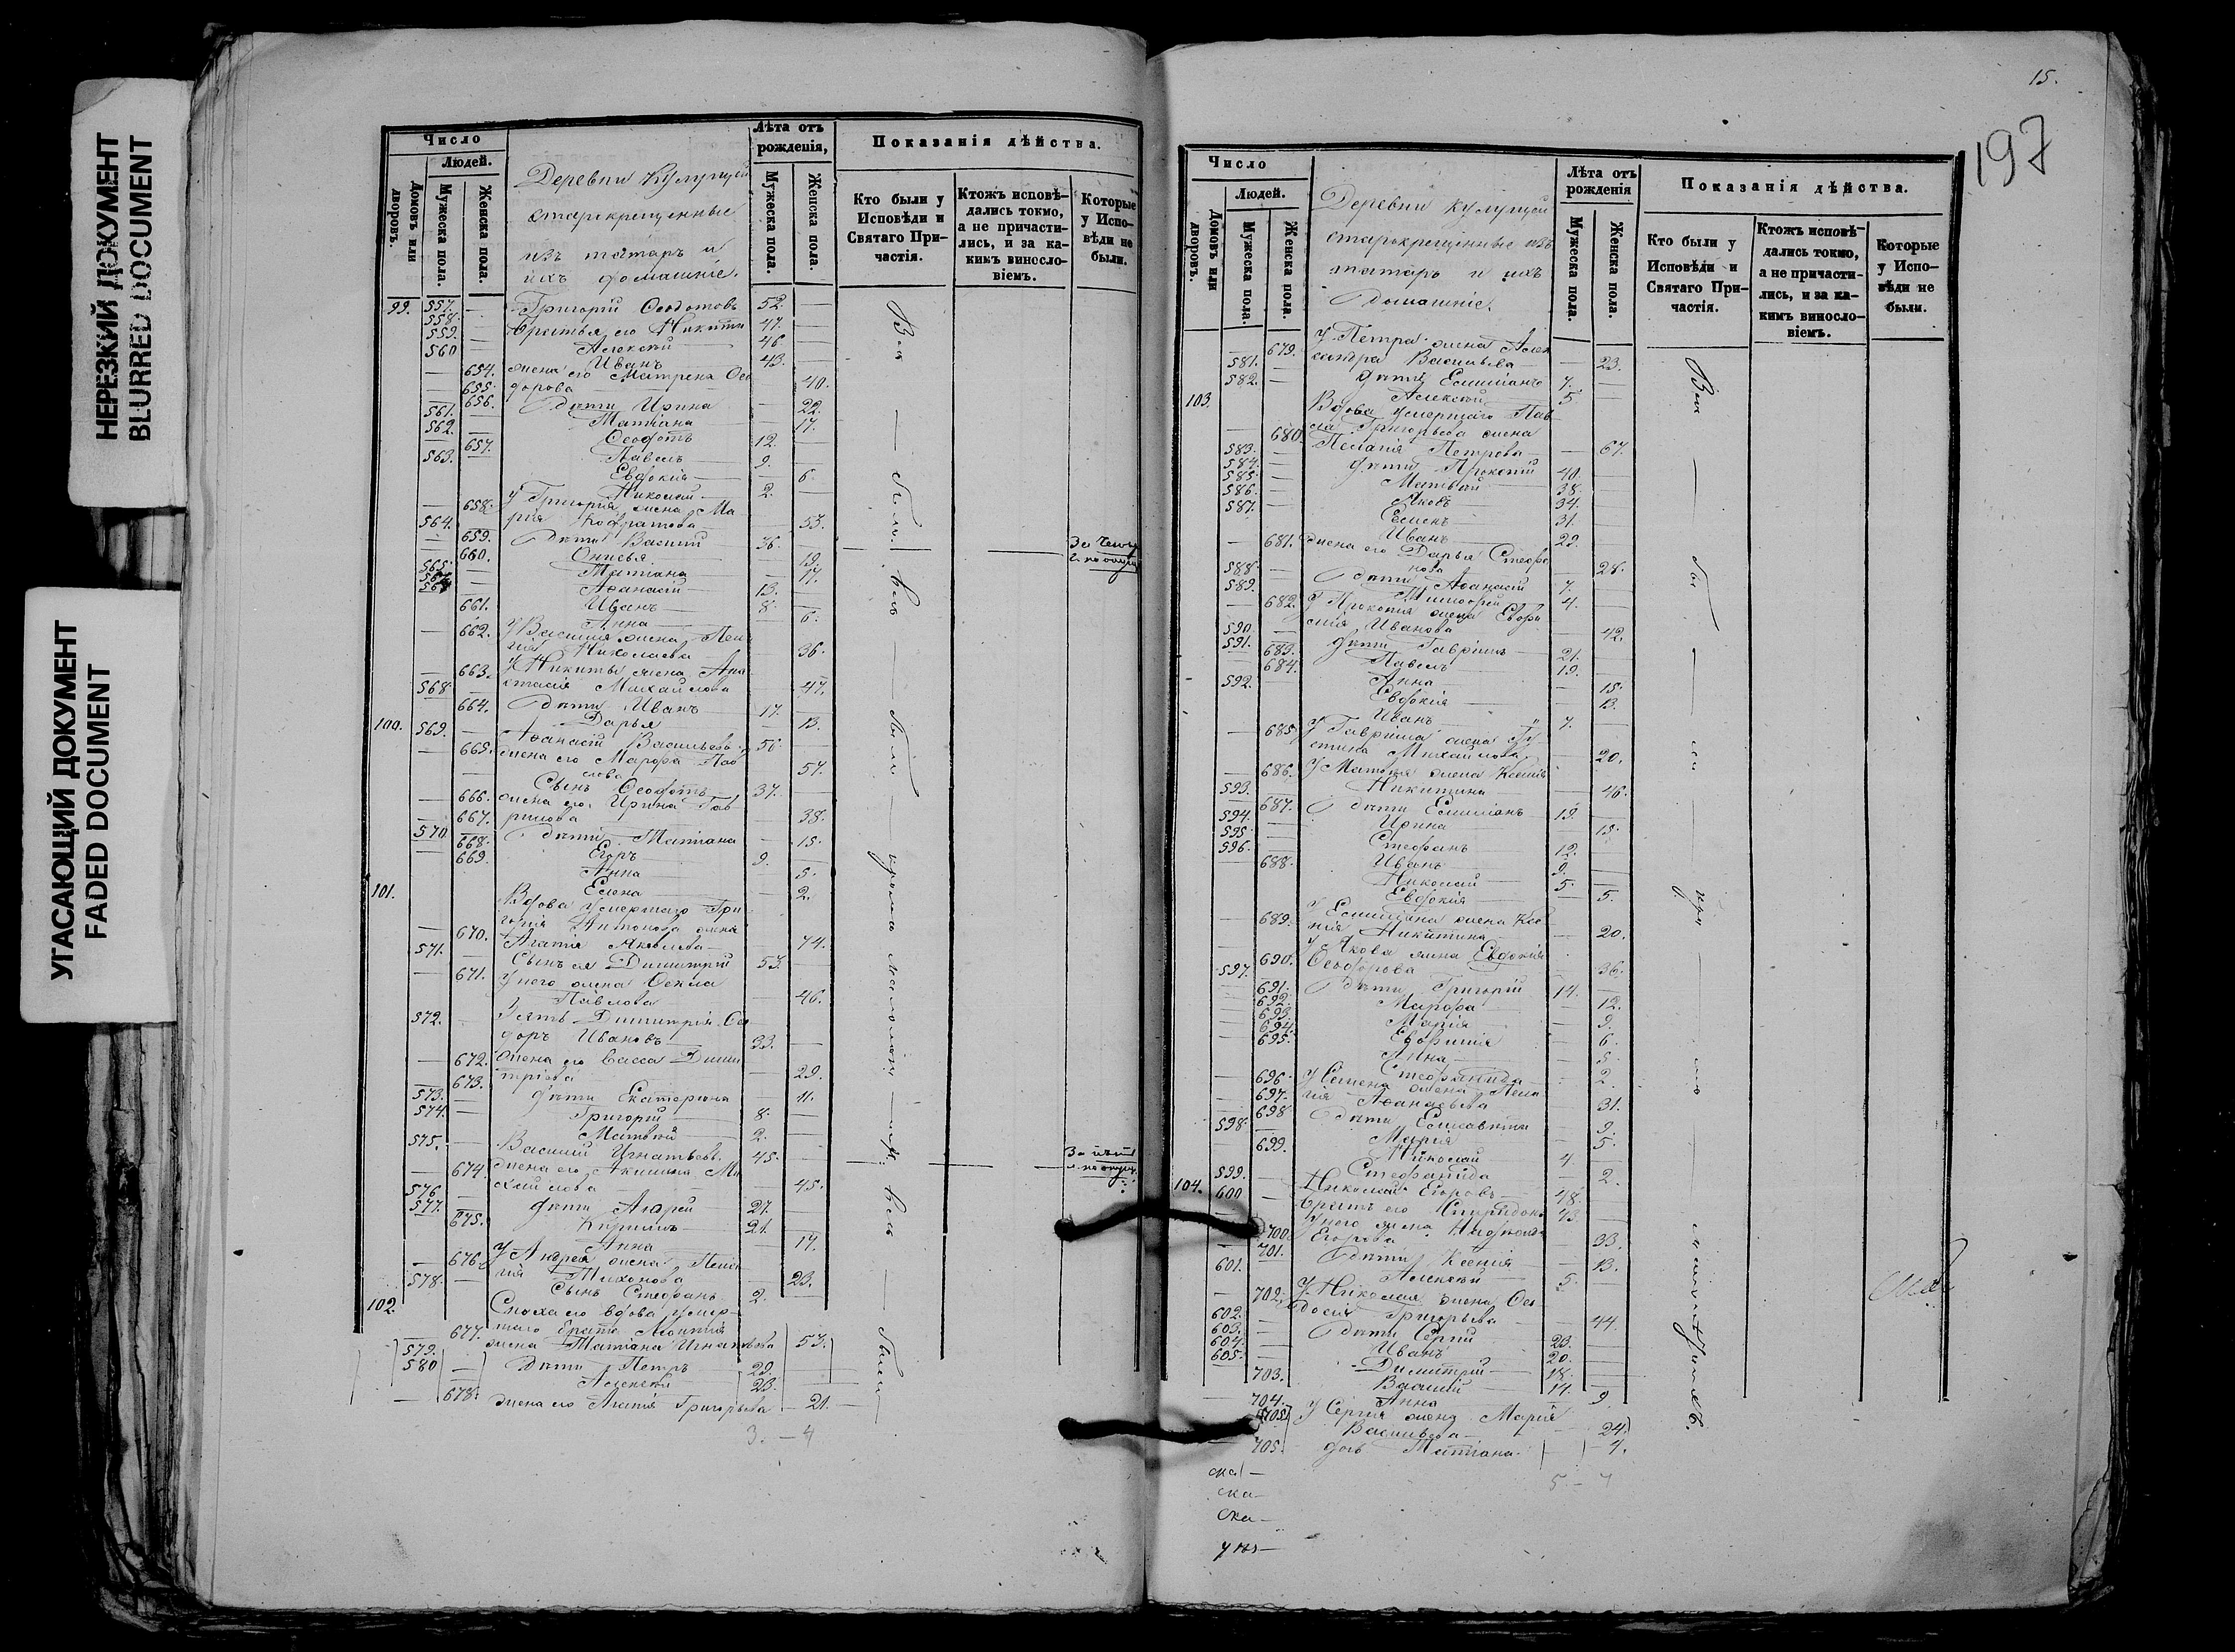 НЕРЕЗКИЙ ДОКУМЕНТ
BLURRED DOCUMENT
УГАСАЮЩИЙ ДОКУМЕНТ
FADED DOCUMENT
Число
Людей.
Домовъ или дворовъ.
Мужеска пола.
Женска пола.
Деревни
старокрещенные
изъ татаръ и
ихъ домашніе.
Лѣта отъ рожденія,
Мужеска пола.
Женска пола.
Показанія дѣйства.
Кто были у Исповѣди и Святаго Причастія.
Ктожъ исповѣдались токмо, а не причастились, и за какимъ винословіемъ.
Которые у Исповѣди не были.
99. 557. — Григорій Ѳеодотовъ 52. —
558. — Братья его Никита 47. —
559. — Алексѣй 46. —
560 — Иванъ 43. —
— 654. жена его Матрена Ѳео
дорова — 40.
— 655. дѣти Ирина — 22.
— 656. Татіана — 17.
561. — Ѳеодотъ 12. —
562. — Павелъ 9. —
— 657. Евдокія — 6.
563. — Николай 2. —
— 658. У Григорія жена Ма
рія Кодратова — 53.
564. — дѣти Василій 36. —
— 659. Онисья — 19.
— 660. Татіана — 17.
565. — Аѳанасій 13. —
Иванъ 8. —
— 661. Анна — 6.
— 662. У Василія жена Пела
гія Николаева — 36.
— 663. У Никиты жена Ана
стасія Михайлова — 47.
568 — дѣти Иванъ 17. —
— 664. Дарья — 13.
100. 569. — Аѳанасій Васильевъ 56. —
— 665. жена его Марѳа Пав
лова — 57.
Сынъ Ѳеодотъ 37. —
— 666. жена его Ирина Гав
рилова — 38.
— 667. дѣти Татіана — 15.
570 — Егоръ 9. —
— 668. Анна — 5.
— 669. Елена — 2.
101. Вдова умершаго Гри
горія Антонова жена
— 670. Агатія Яковлева — 74.
571. — Сынъ ея Димитрій 53. —
— 671. У него жена Ѳекла
Павлова — 46.
572. — Зять Димитрія Ѳео
доръ Ивановъ 33. —
— 672. Жена его Васса Дими
тріева — 29.
— 673. дѣти Екатерина — 11.
573. — Григорій 8. —
574. — Матвѣй 2. —
575. — Василій Игнатьевъ 45. —
— 674 жена его Акилина Ми
хайлова — 45.
576 — дѣти Андрей 27. —
577. — Кириллъ 21. —
— 675. Анна — 17.
— 676 У Андрея жена Пела
гія Тихонова — 23.
578. — Сынъ Стефанъ 2. —
102. Сноха его вдова умер
шаго брата Леонтія
677. жена Татіана Игнатьева 53.
579. — Дѣти Петръ 29. —
580 — Алексѣй 23. —
— 678. жена его Агатія Григорьева — 21. —
3. — 4
Всѣ — были — кромѣ малолѣтн.
15.
197
Число
Людей.
Домовъ или дворовъ.
Мужеска пола.
Женска пола.
Деревни
старокрещенные изъ
татаръ и ихъ
домашніе.
Лѣта отъ рожденія
Мужеска пола.
Женска пола.
Показанія дѣйства.
Кто были у Исповѣди и Святаго Причастія.
Ктожъ исповѣдались токмо, а не причастились, и за какимъ винословіемъ.
Которые у Исповѣди не были.
— 679. У Петра жена Алек
сандра Васильева — 23.
581. — дѣти Емиліанъ 7. —
582. — Алексѣй 5 —
103. Вдова умершаго Пав
ла Григорьева жена
— 680. Пелагія Петрова — 67.
583. — дѣти Прокопій 40. —
584. — Матвѣй 38. —
585. — Яковъ 34. —
586. — Семенъ 31. —
587. — Иванъ 29. —
— 681. жена его Дарья Стефа
нова — 28.
588. — дѣти Аѳанасій 7. —
589. — Тимоѳей 4. —
— 682. У Прокопія жена Евфи
мія Иванова — 42.
590 — дѣти Гавріилъ 21. —
591. — Павелъ 19. —
— 683. Анна — 15.
— 684. Евдокія — 13.
592. — Иванъ 7. —
— 685 У Гавріила жена Іу
стина Михайлова — 20.
— 686. У Матвѣя жена Ксенія
Никитина — 46.
593. — дѣти Емиліанъ 19. —
— 687. Ирина — 15.
594. — Стефанъ 12. —
595 — Иванъ 9. —
596. — Николай 5. —
— 688. Евдокія — 5.
— 689. У Емиліана жена Ксе
нія Никитина — 20.
— 690. У Якова жена Евдокія
Ѳеодорова — 36.
597. — дѣти Григорій 14. —
— 691. Марѳа — 12.
— 692. Марія — 9.
— 693. Евфимія — 6.
— 694. Анна — 5.
— 695. Стефанида — 2.
— 696. У Семена жена Пела
гія Аѳанасьева — 31.
— 697. дѣти Елисавета — 9.
— 698 Марія — 5.
598. — Николай 4 —
— 699. Стефанида — 2.
104. 599. — Николай Егоровъ 48. —
600 — братъ его Спиридонъ 43 —
— 700. У него жена
Егорова — 33.
— 701. дѣти Ксенія — 13.
601. — Алексѣй 5. —
— 702. У Николая жена Ѳео
досія Григорьева — 44.
602. — дѣти Сергій 23. —
603. — Иванъ 20. —
604. — Димитрій 18. —
605. — Василій 14. —
703. Анна — 9.
704. У Сергія жена Марія
Васильева — 24.
705. дочь Татіана — 4.
5 — 4
Всѣ — бы — ли
ска —
ска —
ска —